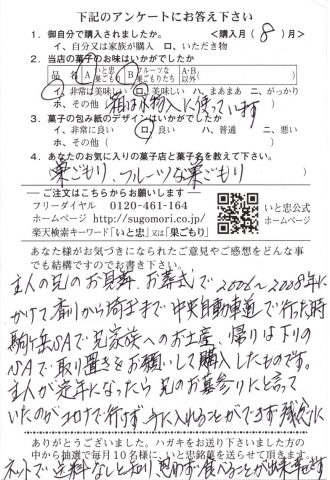 下記のアンケートにお答え下さい
1. 御自分で購入されましたか。 <購入月( 8 )月>
イ、自分又は家族が購入 ロ、いただき物
2. 当店の菓子のお味はいかがでしたか
品名 A いと忠巣ごもり B フルーツな巣ごもりたち A・B以外
イ、非常に美味しい ロ、美味しい ハ、まあまあ ニ、がっかり
ホ、その他( 箱は小物入に使っています
3. 菓子の包み紙のデザインはいかがでしたか
イ、非常に良い ロ、良い ハ、普通 ニ、悪い
ホ、その他( )
4. あなたのお気に入りの菓子店と菓子名を教えて下さい。
巣ごもり、フルーツな巣ごもり
ご注文はこちらからお願いします
フリーダイヤル 0120-461-164
ホームページ http://sugomori.co.jp
楽天検索キーワード「いと忠」又は「巣ごもり」
いと忠公式
ホームページ
あなた様がお気づきになられたご意見やご感想をどんな事
でも結構ですのでお書き下さい。
主人の兄のお見舞、お葬式で2006〜2008年に
かけて香川から埼玉まで中央自動車道で行った時
駒ヶ岳SAで兄家族へのお土産、帰りは下りの
SAで取り置きをお願いして購入したものです。
主人が定年になったら兄のお墓参りにと言って
いたのがコロナで行けず手に入れることができず残念に
ありがとうございました。ハガキをお送り下さいました方の
中から抽選で毎月10名様に、いと忠銘菓を送らせて頂きます。
ネットで送料なしと知り思わず食べることが出来幸せです